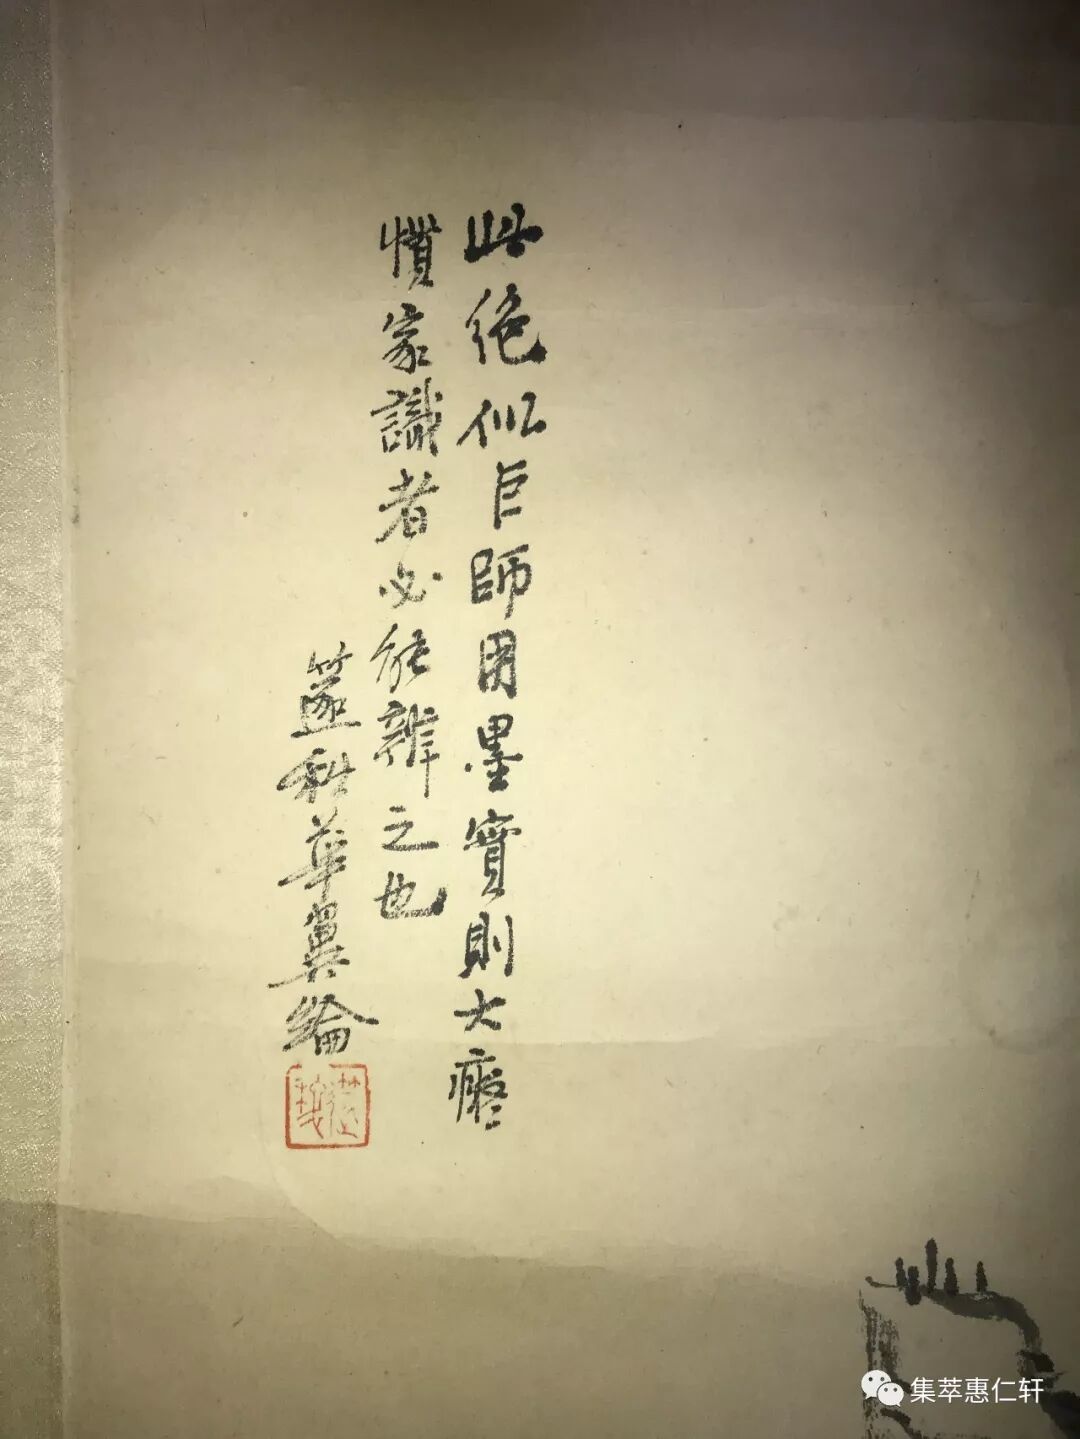 此絶似巨師用墨實則大癡
慣家識者必能辨之也
篴秋華翼綸
集萃惠仁轩